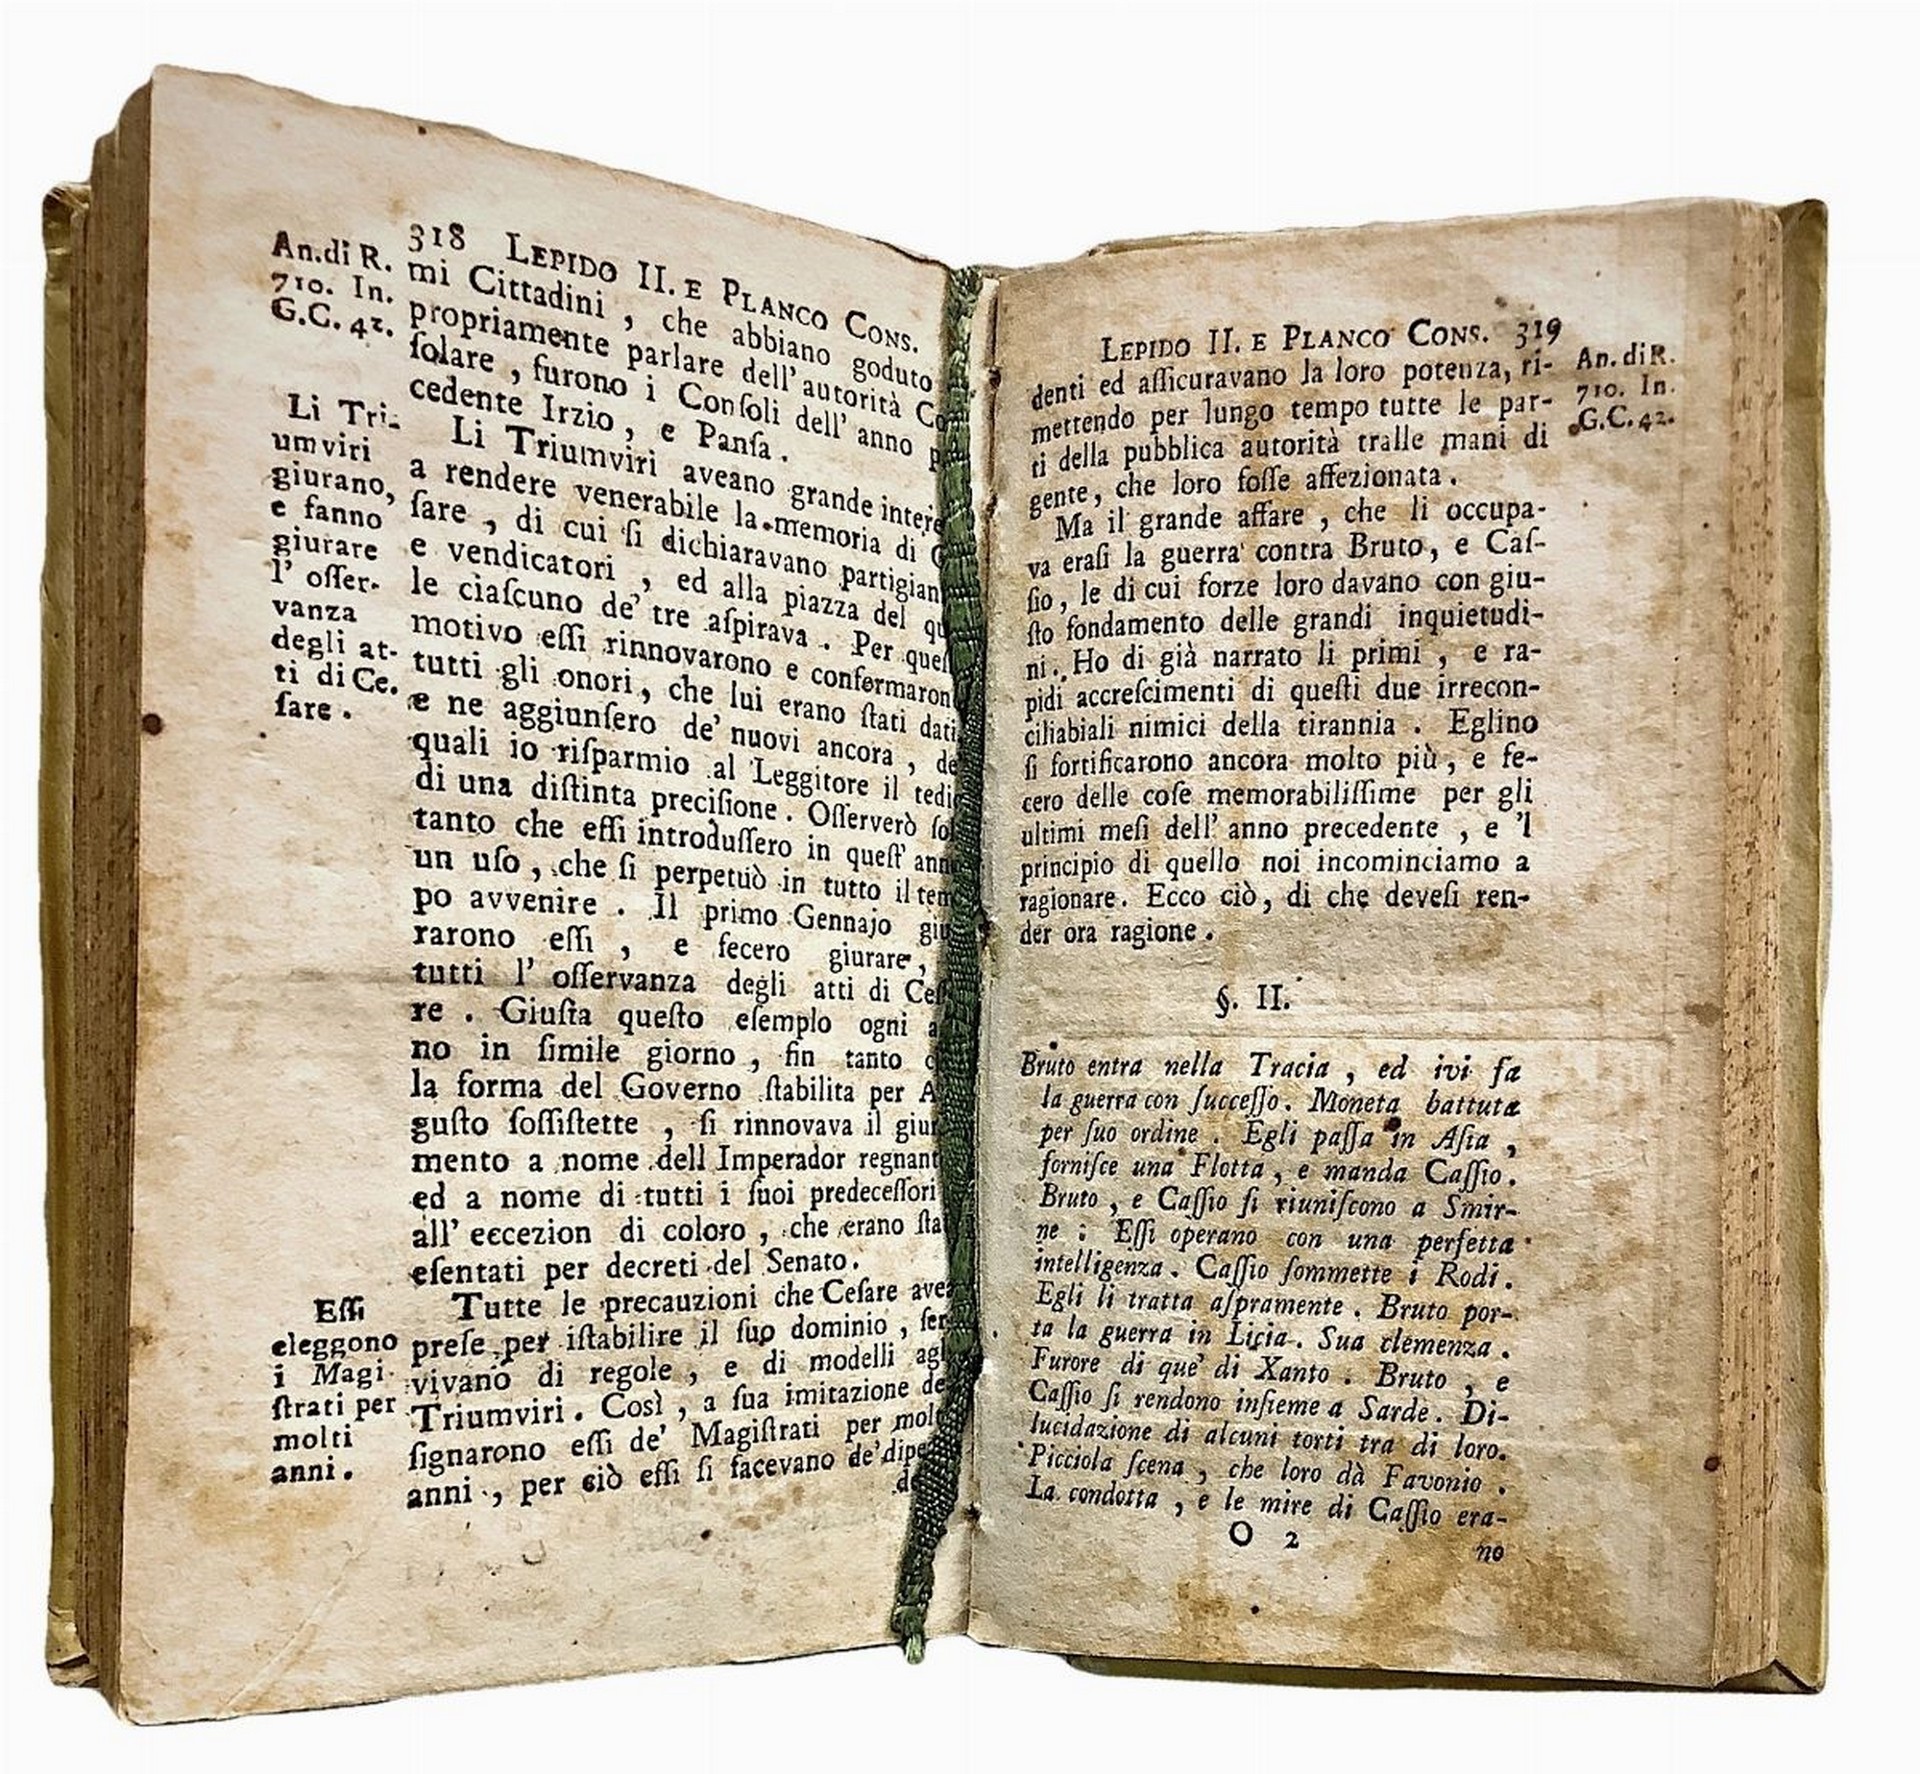 318 LEPIDO II. E PLANCO CONS.
An. di R.
710. In.
G.C. 42.
mi Cittadini , che abbiano goduto
propriamente parlare dell' autorità Co
ſolare , furono i Conſoli dell' anno p
cedente Irzio , e Panſa .
Li Tri-
umviri
giurano,
e fanno
giurare
l' oſſer-
vanza
degli at-
ti di Ce.
ſare .
Li Triumviri aveano grande intere
a rendere venerabile la memoria di C
ſare , di cui ſi dichiaravano partigian
e vendicatori , ed alla piazza del qu
le ciaſcuno de' tre aſpirava . Per queſ
motivo eſſi rinnovarono e confermaron
tutti gli onori , che lui erano ſtati dati
e ne aggiunſero de' nuovi ancora , de
quali io riſparmio al Leggitore il tedi
di una diſtinta preciſione . Oſſerverò ſol
tanto che eſſi introduſſero in queſt' ann
un uſo , che ſi perpetuò in tutto il tem
po avvenire . Il primo Gennajo giu
rarono eſſi , e fecero giurare ,
tutti l' oſſervanza degli atti di Ceſ
re . Giuſta queſto eſemplo ogni a
no in ſimile giorno , fin tanto c
la forma del Governo ſtabilita per A
guſto ſoſſiſtette , ſi rinnovava il giur
mento a nome dell Imperador regnant
ed a nome di tutti i ſuoi predeceſſori
all' eccezion di coloro , che erano ſta
eſentati per decreti del Senato .
Eſſi
eleggono
i Magi-
ſtrati per
molti
anni .
Tutte le precauzioni che Ceſare ave
preſe per iſtabilire il ſuo dominio , ſer
vivano di regole , e di modelli ag
Triumviri . Così , a ſua imitazione de
ſignarono eſſi de' Magiſtrati per mol
anni , per ciò eſſi ſi facevano de' dipe
de
LEPIDO II. E PLANCO CONS. 319
An. di R.
710. In.
G.C. 42.
denti ed aſſicuravano la loro potenza, ri-
mettendo per lungo tempo tutte le par-
ti della pubblica autorità tralle mani di
gente, che loro foſſe affezionata .
Ma il grande affare , che li occupa-
va eraſi la guerra contra Bruto, e Caſ-
ſio, le di cui forze loro davano con giu-
ſto fondamento delle grandi inquietudi-
ni . Ho di già narrato li primi , e ra-
pidi accreſcimenti di queſti due irrecon-
ciliabiali nimici della tirannia . Eglino
ſi fortificarono ancora molto più , e fe-
cero delle coſe memorabiliſſime per gli
ultimi meſi dell' anno precedente , e 'l
principio di quello noi incominciamo a
ragionare. Ecco ciò, di che deveſi ren-
der ora ragione .
§. II.
Bruto entra nella Tracia , ed ivi fa
la guerra con ſucceſſo . Moneta battuta
per ſuo ordine . Egli paſſa in Aſia ,
forniſce una Flotta , e manda Caſſio .
Bruto , e Caſſio ſi riuniſcono a Smir-
ne : Eſſi operano con una perfetta
intelligenza . Caſſio ſommette i Rodi .
Egli li tratta aſpramente . Bruto por-
ta la guerra in Licia . Sua clemenza .
Furore di que' di Xanto . Bruto , e
Caſſio ſi rendono inſieme a Sarde . Di-
lucidazione di alcuni torti tra di loro.
Picciola ſcena , che loro dà Favonio .
La condotta , e le mire di Caſſio era-
O 2
no